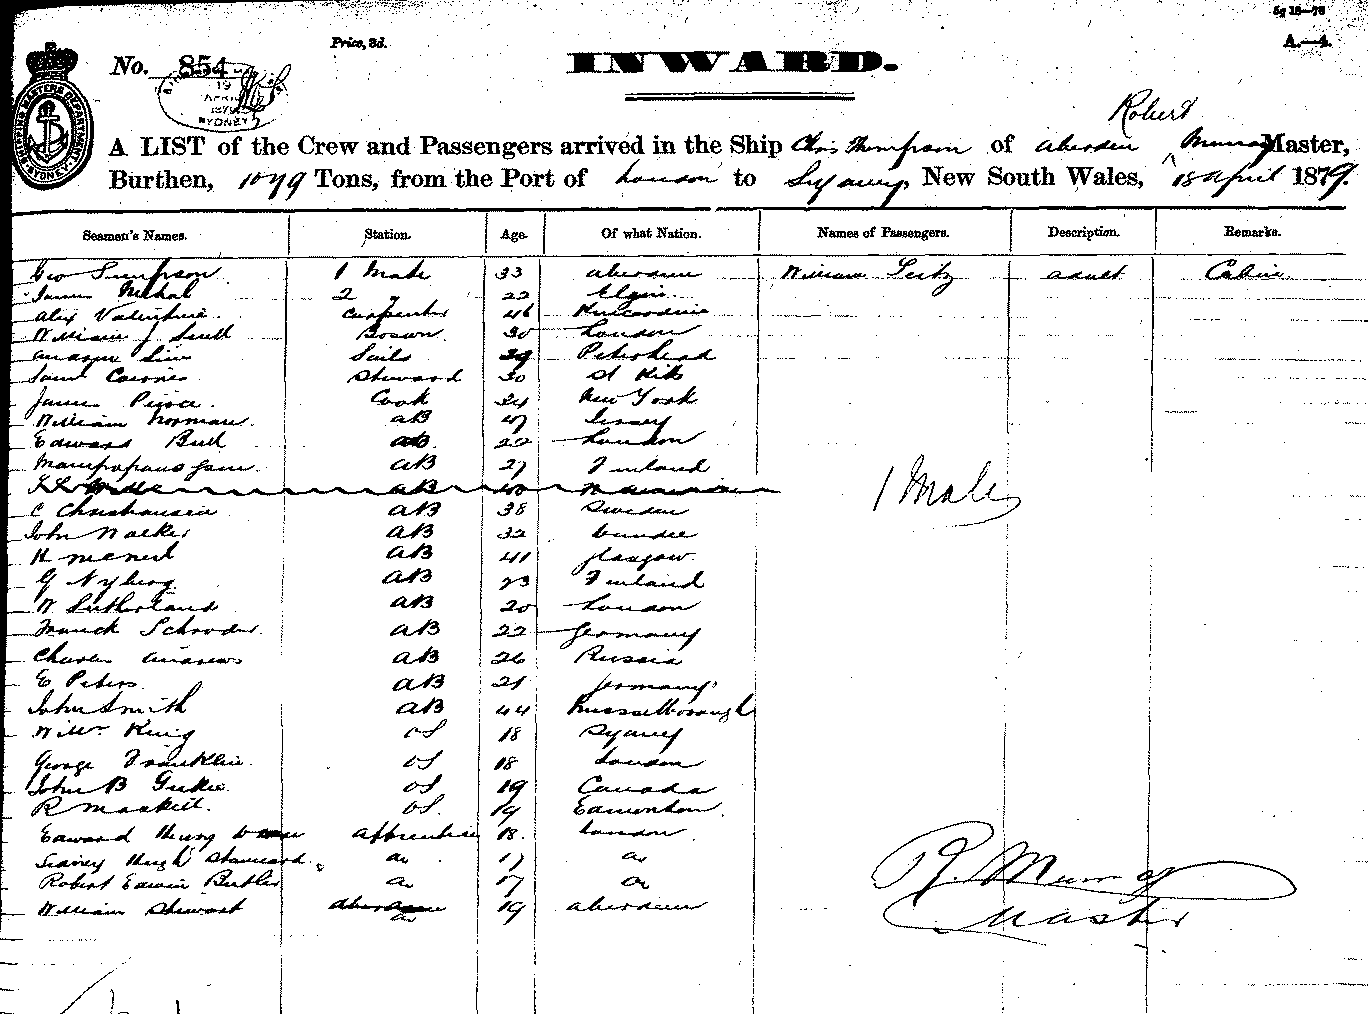 5g 18—78
Price, 3d.
A.—4.
No. 854
19
APRIL
1879
SYDNEY
INWARD.
SHIPPING MASTERS DEPARTMENT SYDNEY
Robert
A LIST of the Crew and Passengers arrived in the Ship Chas Thompson of Aberdeen Murray Master,
Burthen, 1079 Tons, from the Port of London to Sydney, New South Wales, 18 April 1879.
Seamen's Names. Station. Age. Of what Nation. Names of Passengers. Description. Remarks.
Geo Simpson 1 Mate 33 Aberdeen William Seitz adult Cabin
James 2 22 Elgin
Alex Valentine Carpenter 46 Kincardine
William J Smith Bosun 30 London
Andrew Sim Sails 29 Peterhead
Saml Steward 30 St Kits
James Pierce Cook 34 New York
William Norman AB 47 Jersey
Edward Bull AB 22 London
AB 27 Finland
AB
1 Male
C Christiansen AB 38 Sweden
John Walker AB 32 Dundee
H McNeil AB 41 Glasgow
G Nyberg AB 23 Finland
W Sutherland AB 20 London
Schroder AB 22 Germany
Charles Andrews AB 26 Russia
E Peters AB 21 Germany
John Smith AB 44 Russellborough
Willm King OS 18 Sydney
George Franklin OS 18 London
John B OS 19 Canada
R Maskell OS 19 Edmonton
Edward Henry Apprentice 18 London
Sidney Hugh Stannard do 17 do
Robert Edwin Butler do 17 do
William Stewart do 19 Aberdeen
R. Murray
Master